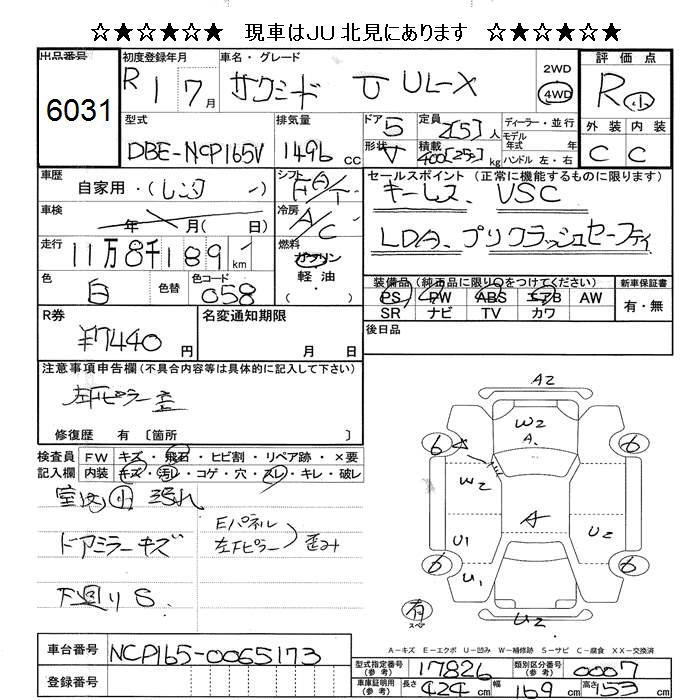 ☆★☆★☆★☆ 現車はJU北見にあります ☆★☆★☆★☆
出品番号 初度登録年月 車名・グレード 2WD 評価点
6031 R1 7月 サクシード U UL-X 4WD R小
型式 排気量 ドア 5 定員 2[5]人 ディーラー・並行 外装 内装
DBE-NCP165V 1496cc 形状 V 積載 400[250]kg モデル年式 年式 ハンドル 左・右 C C
車歴 自家用・(レンタ) シフト FA/T セールスポイント(正常に機能するものに限ります)
車検 年 月( 日) 冷房 A/C キーレス、VSC
走行 11万8千189km 燃料 ガソリン LDA、プリクラッシュセーフティ
色 白 色替 色コード 058 軽・油 ( ) 装備品(純正品に限り○をつけてください) 新車保証書
PS PW ABS エアB AW 有・無
SR ナビ TV カワ
R券 ¥7440円 名変通知期限 月 日 後日品
注意事項申告欄(不具合内容等は具体的に記入して下さい)
左Fピラー歪
修復歴 有 〔箇所 〕
検査員 FW キズ・飛石・ヒビ割・リペア跡・×要
記入欄 内装 キズ・汚レ・コゲ・穴・スレ・キレ・破レ
室内小汚れ
ドアミラーキズ Eパネル 左Fピラー)歪み
下廻りS
A2
W2
A
6 6
W2
A
U1 U2
6 6
U1
有 スペア U2
A-キズ E-エクボ U-凹み W-補修跡 S-サビ C-腐食 XX-交換済
車台番号 NCP165-0065173
型式指定番号(参考) 17826 類別区分番号(参考) 0007
登録番号 車庫証明用(参考) 長さ 424cm 幅 169cm 高さ 153cm